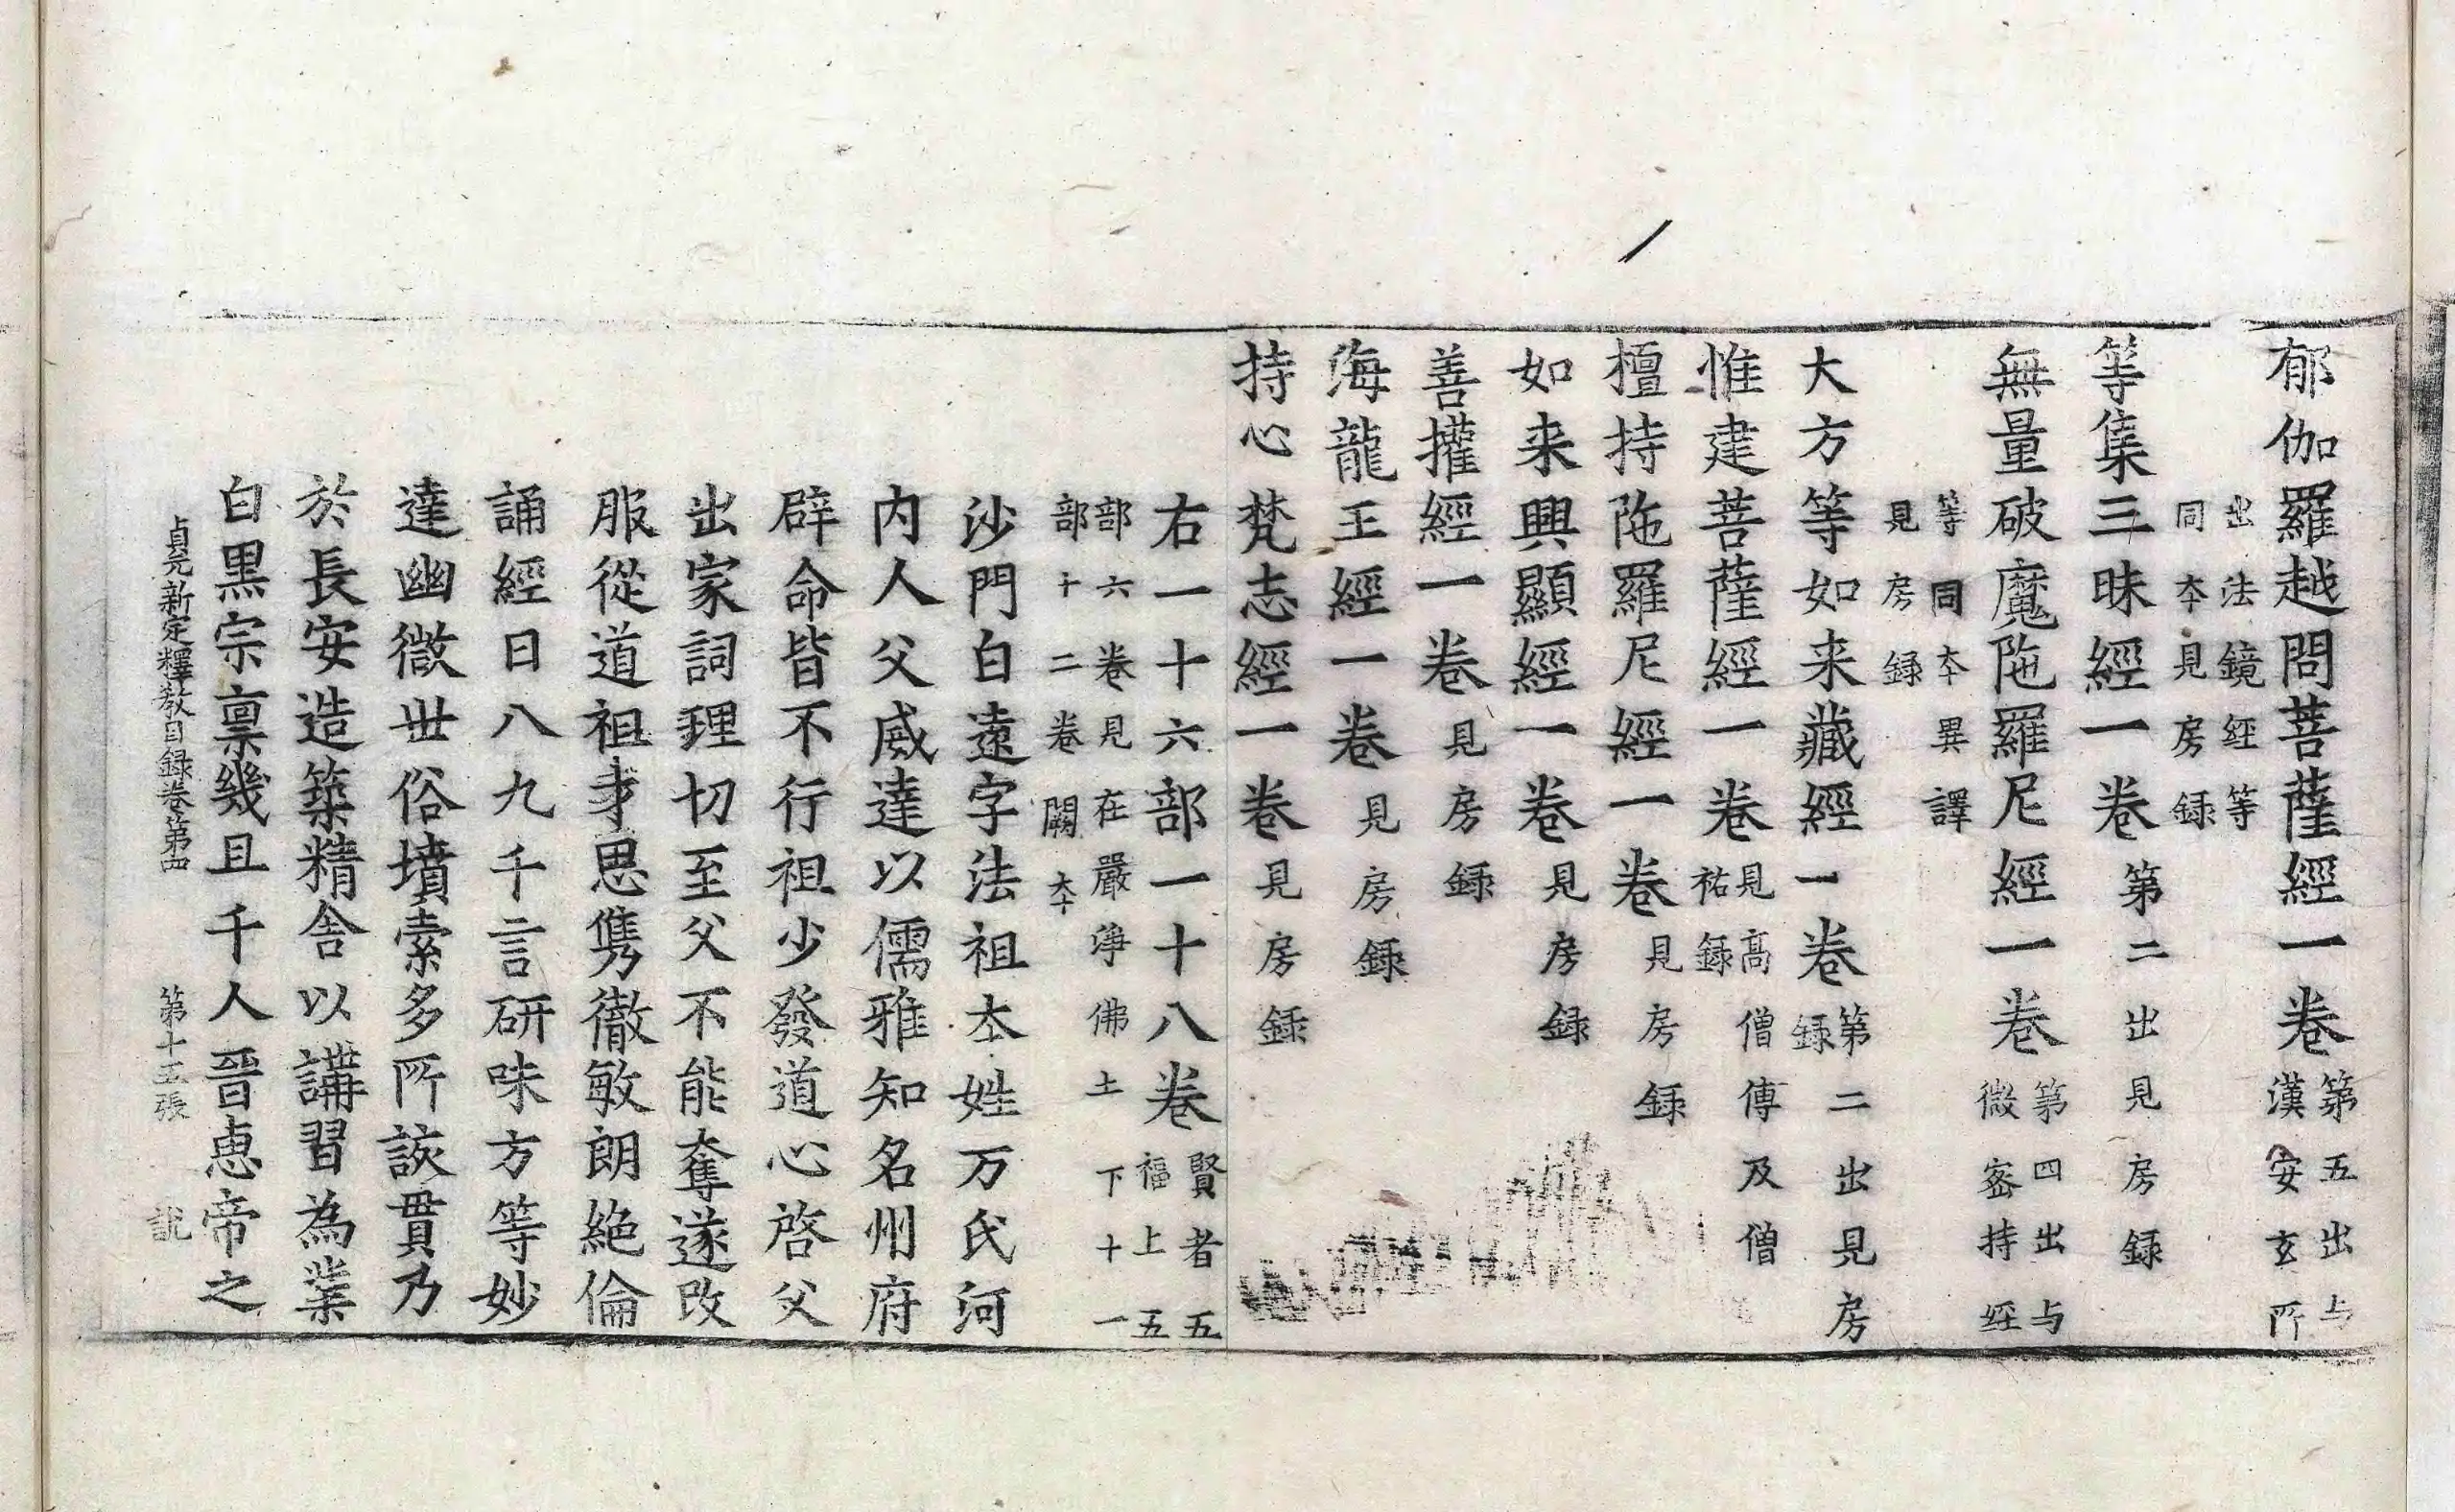 郁伽羅越問菩薩經一卷第五出与漢安玄所
出法鏡経等同夲見房録
等集三昧經一卷第二出見房録
無量破魔陁羅尼經一卷第四出与微宻持経
等同夲異譯見房録
大方等如来藏經一卷第二出見房録
惟建菩薩經一卷見高僧傳及僧祐録
檀持陁羅尼經一卷見房録
如来興顯經一卷見房録
善權經一卷見房録
海龍王經一卷見房録
持心梵志經一卷見房録
右一十六部一十八卷賢者五福上五
部六卷見在嚴淨佛土下十一部十二卷闕夲
沙門白遠字法祖夲姓万氏河
内人父威達以儒雅知名州府
辟命皆不行祖少發道心啓父
出家詞理切至父不能奪遂改
服從道祖才思儁徹敏朗絶倫
誦經日八九千言研味方等妙
達幽微世俗墳索多所該貫乃
於長安造築精舍以講習為業
白黒宗禀幾且千人晉恵帝之
貞元新定釋教目録卷第四　第十五張　説